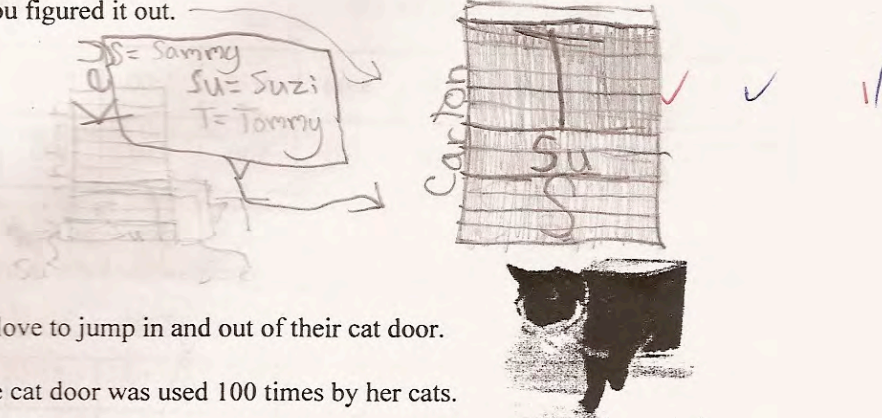 ou figured it out.
Key
S= Sammy
Su= Suzi
T= Tommy
Carton
T
Su
S
love to jump in and out of their cat door.
e cat door was used 100 times by her cats.